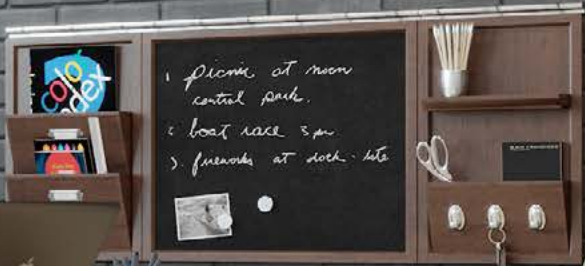 colo
index
1 picnic at noon
central park.
2 boat race 3 pm
3. fireworks at dock - late
SAN FRANCISCO